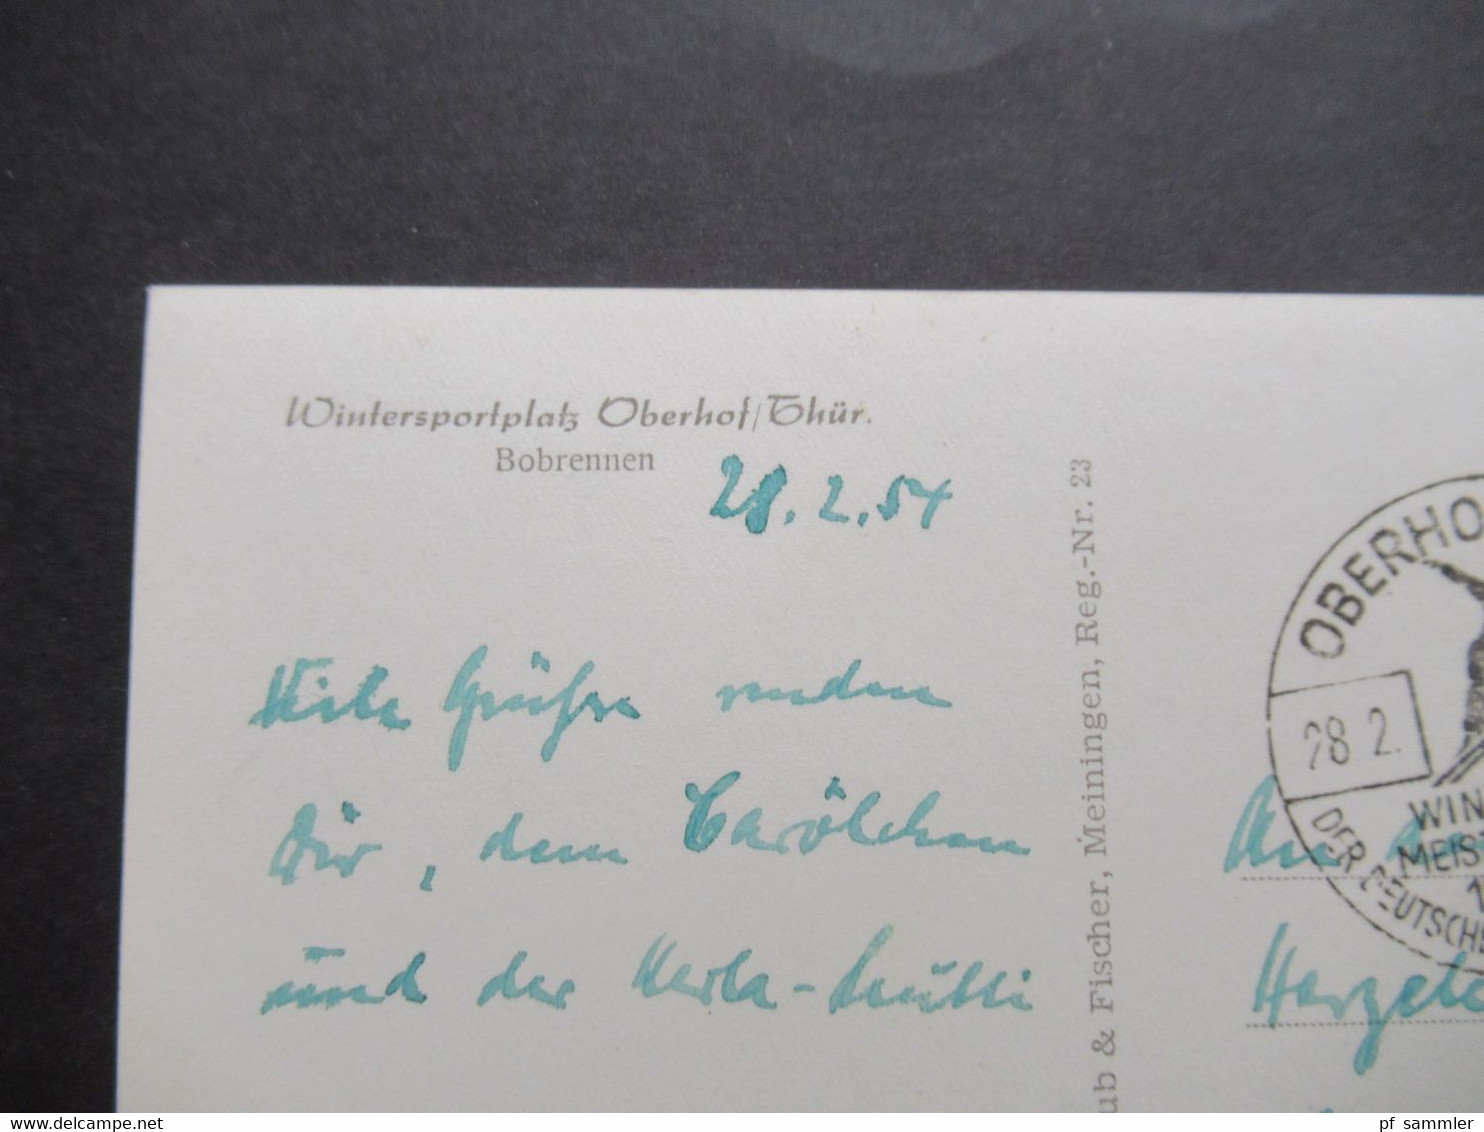 Wintersportplatz Oberhof/Thür.
Bobrennen
28.2.54
Viele Grüße senden
Dir, dem Carölchen
und der Herta-Mutti
ub & Fischer, Meiningen, Reg.-Nr. 23
OBERHO
28 2.
WIN
MEIS
1
DER DEUTSCHE
An
pf sammler